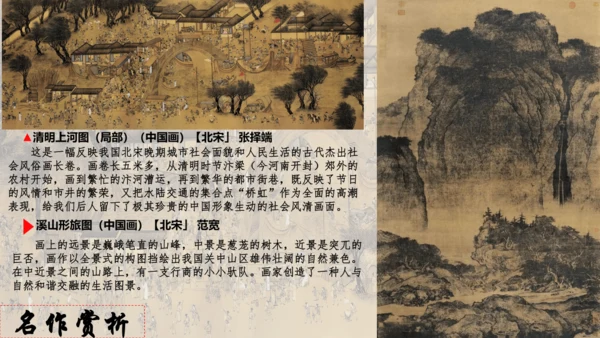 ▲清明上河图（局部）（中国画）【北宋」 张择端
这是一幅反映我国北宋晚期城市社会面貌和人民生活的古代杰出社
会风俗画长卷。画卷长五米多，从清明时节汴梁（今河南开封）郊外的
农村开始，画到繁忙的汴河漕运，再到繁华的都市街巷，既反映了节日
的风情和市井的繁荣，又把水陆交通的集合点“桥虹”作为全面的高潮
表现，给我们后人留下了极其珍贵的中国形象生动的社会风清画面。
溪山形旅图（中国画）【北宋」 范宽
画上的远景是巍峨笔直的山峰，中景是葱茏的树木，近景是突兀的
巨石，画作以全景式的构图挡绘出我国关中山区雄伟壮阔的自然兼色。
在中近景之间的山路上，有一支行商的小小驮队。画家创造了一种人与
自然和谐交融的生活图景。
名作赏析